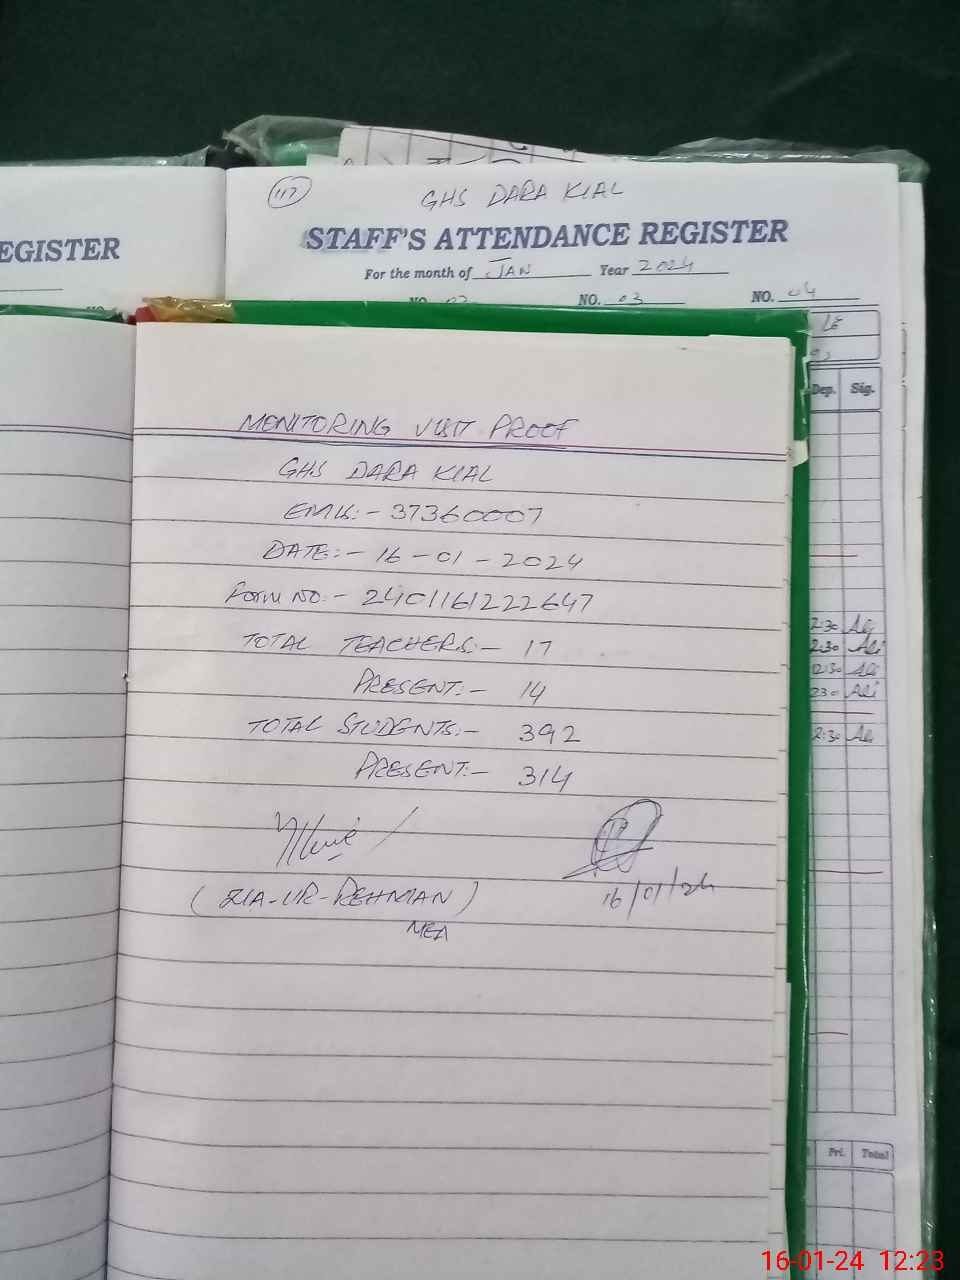 117
GHS DARA KIAL
EGISTER
STAFF'S ATTENDANCE REGISTER
For the month of JAN Year 2024
NO. 03 NO. 04
Dep. Sig.
MONITORING VISIT PROOF
GHS DARA KIAL
EMIS:- 37360007
DATE:- 16-01-2024
Form NO:- 2401161222647
TOTAL TEACHERS:- 17
PRESENT:- 14
TOTAL STUDENTS:- 392
PRESENT:- 314
16/01/24
(ZIA-UR-REHMAN)
MEA
2:30 Ali
2:30 Ali
12:30 Ali
230 Ali
2:30 Ali
Pri. Total
16-01-24 12:23